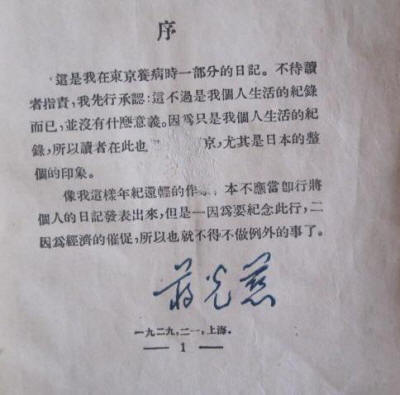 序
這是我在東京養病時一部分的日記。不待讀
者指責,我先行承認:這不過是我個人生活的紀錄
而已,並沒有什麽意義。因爲只是我個人生活的紀
錄,所以讀者在此也京,尤其是日本的整
個的印象。
像我這樣年紀還輕的作,本不應當卽行將
個人的日記發表出來,但是一因爲要紀念此行,二
因爲經濟的催促,所以也就不得不做例外的事了。
蔣光慈
一九二九,二一,上海。
— 1 —